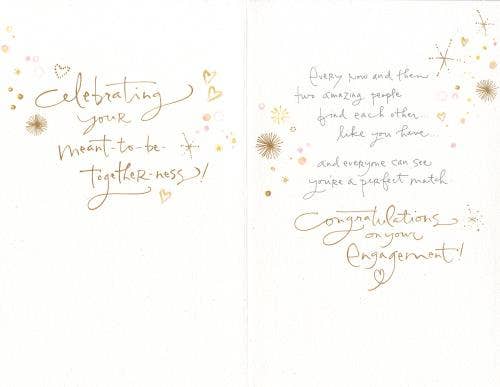 celebrating
your
meant-to-be-
together-ness!
Every now and then
two amazing people
find each other...
like you have...
and everyone can see
you're a perfect match.
Congratulations
on your
Engagement!